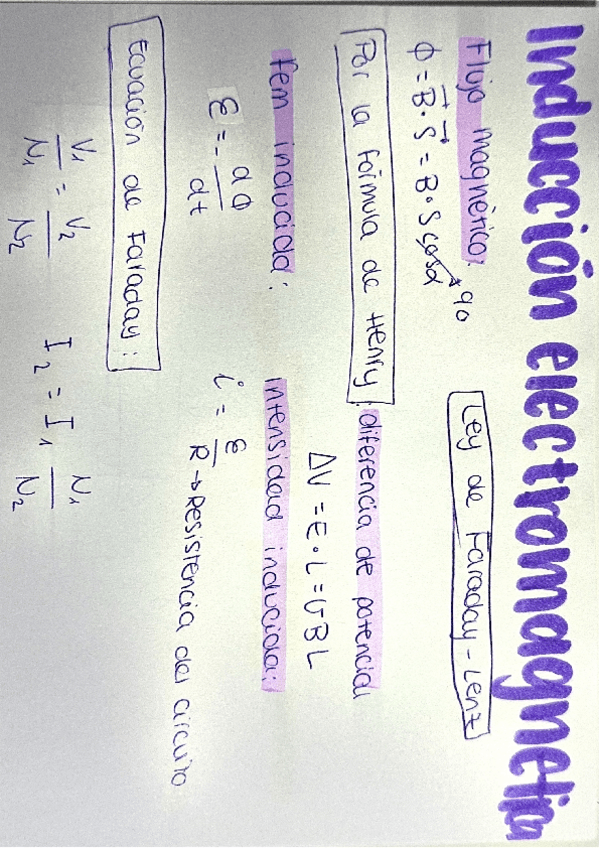 Inducción electromagnetica
Flujo magnético:
Φ = B⃗ · S⃗ = B · S cosα → 90
Ley de Faraday - Lenz
Por la fórmula de Henry: diferencia de potencial
ΔV = E · L = v B L
Fem inducida:
ε = - dΦ / dt
Intensidad inducida:
i = ε / R → Resistencia del circuito
Ecuación de Faraday:
V₁ / N₁ = V₂ / N₂
I₂ = I₁ N₁ / N₂